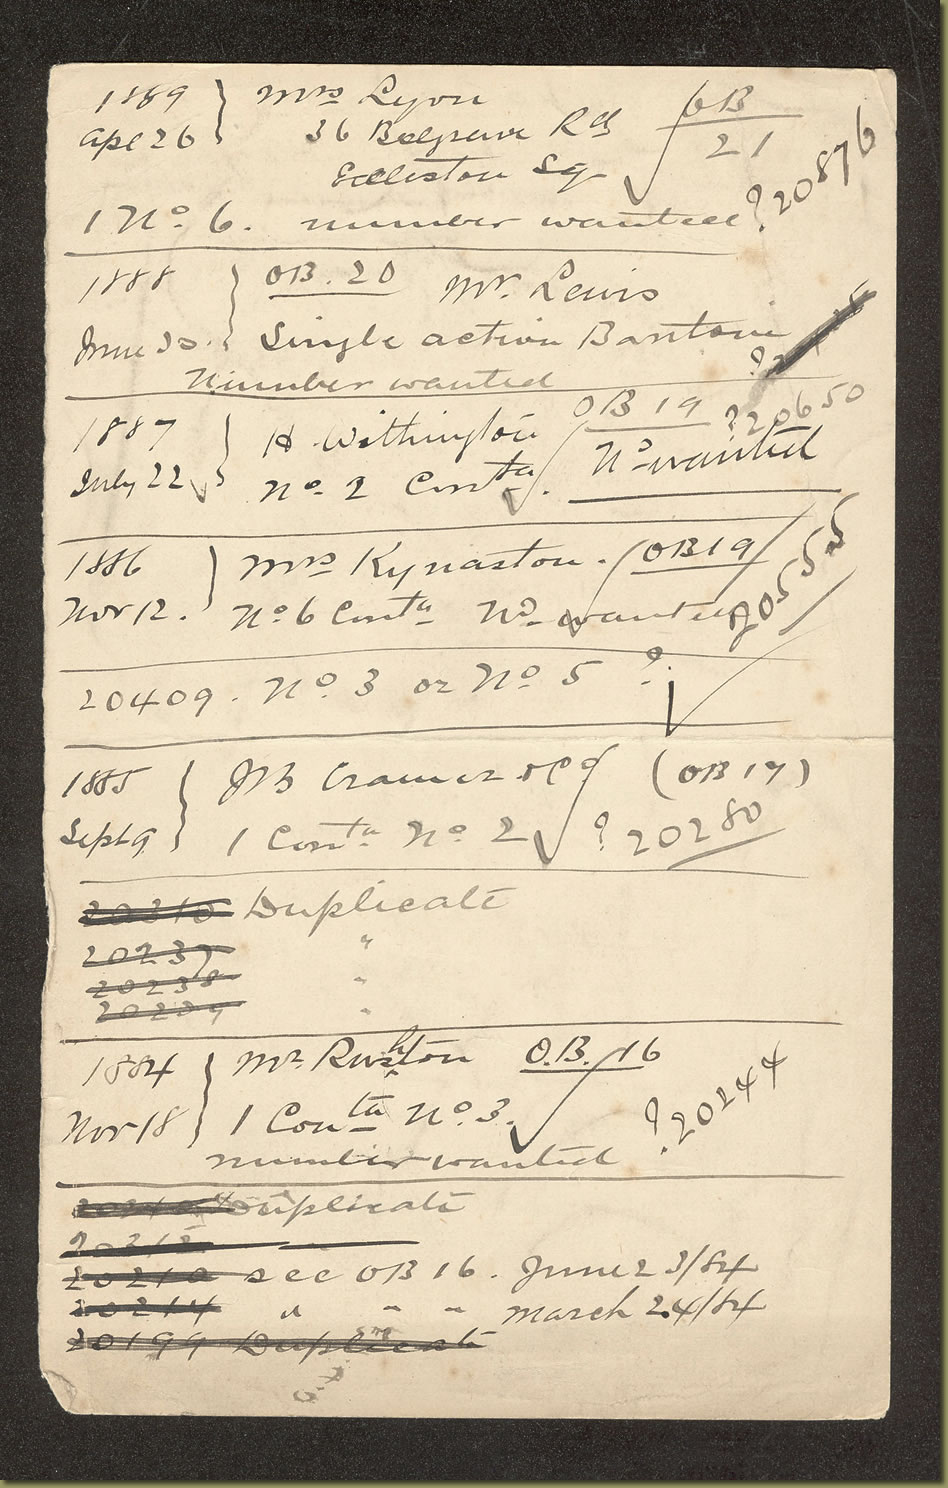 1889 } Mrs Lyon OB
Apl 26 36 Belgrave Rd 21
Eccleston Sq
1 No 6. number wanted ? 20876
1888 } OB. 20 Mr. Lewis
June 30. Single action Baritone
Number wanted ?
1887 } H. Withington OB 19 ? 20650
July 22 No. 2 Conta. No wanted
1886 } Mrs Kynaston. OB 19
Nov 12. No. 6 Conta No wanted 20555
20409. No. 3 or No. 5 ?
1885 } JB Cramer & Co (OB 17)
Sept 9 1 Conta No. 2 ? 20280
Duplicate
20237 "
20238 "
20239 "
1884 } Mr. Rushton O.B. 16
Nov 18 1 Conta No. 3. ? 20244
number wanted
Duplicate
20212
20210 see OB 16. June 23/84
20214 " " " March 24/84
20199 Duplicate